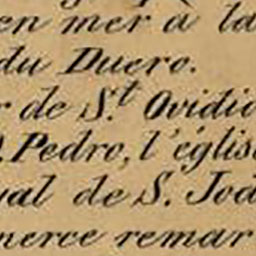 en mer à la
du Duero.
r de S.t Ovidio
. Pedro, l'église
ual de S. Joa
merce remar